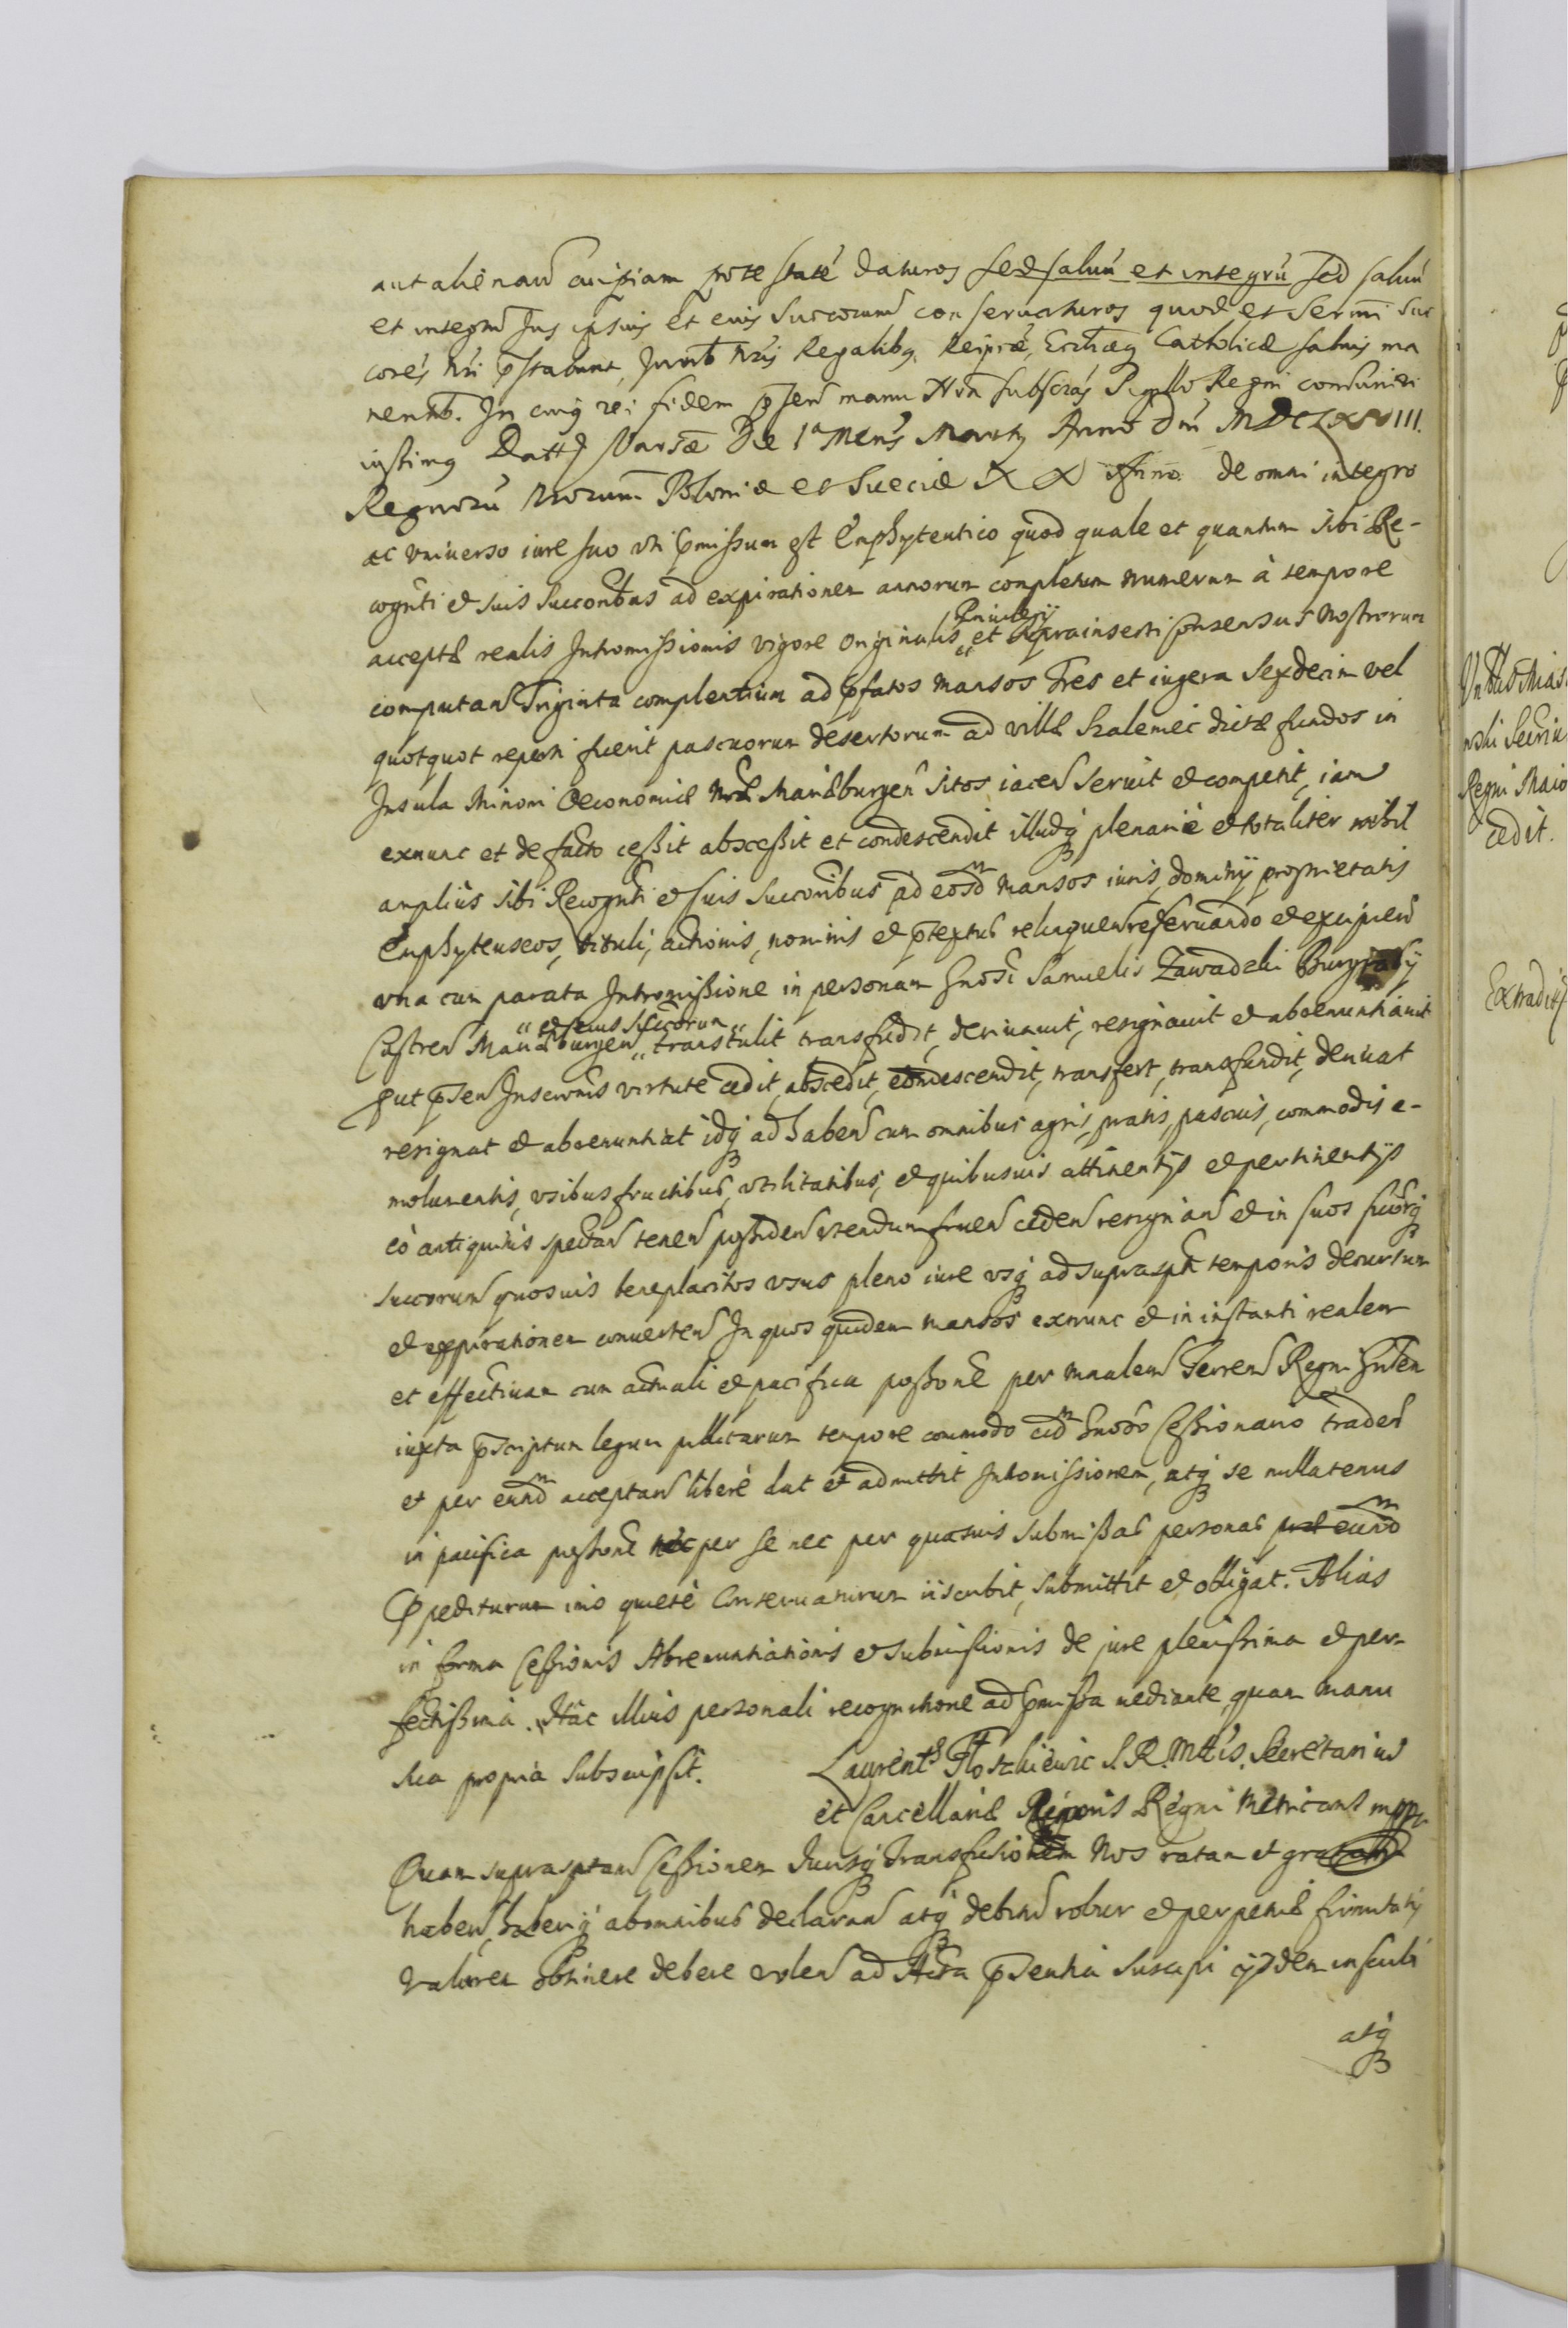 aut alienand cuipiam potestaté daturos sed salvũ et integrũ sed salvũ
et integrũ Jus ipsius et eius Succorum conservaturos quod et Sermi Suc
corés Nri pstabunt, Juribs Nris Regalibq, Reiptae, Ecclaeq Catholicae salvis ma
nentib. In cuiq rei fidem psen manu Nra subscrãs Sigillo Regni communiri
iussimq Datt Varsae Die 1a Mens Marty Anno Dni MDCLXVIII.
Regnorũ Nrorum Poloniae et Sueciae XX Anno. de omni integro
ac universo iure suo vti pmissum est Emphyteutico quod quale et quantum sibi Re-
cognti et suis Succoribus ad expirationem annorum completum numerum à tempore
acceptae realis Intromissionis vigore Originalis Privilegij et suprainserti Consensus Nostrorum
computand Triginta complentium ad pfatos Mansos Tres et iugera Sexdecim vel
quotquot reperti fuerit pascuorum desertorum ad villae Szalemeic dictae fundos in
Insula Minori Oeconomiae Nrae Mariaeburgen Sitos iacen servit et competit, iam
exnunc et de facto cessit abscessit et condescendit illudq plenarie et totaliter nihil
amplius sibi Recognti et suis Succoribus ad eosd Mansos iuris, dominij proprietatis
Emphyteuseos, tituli, actionis, nominis et ptextus relinquen reservando et excipien
vna cum parata Intromissione in personam Gnosi Samuelis Zawadzki Burgrabij
Castren Mariaeburgen et eius Succorum transtulit transfudit, derivavit, resignavit et abrenuntiavit
put psen Inscronis virtute cedit, abscedit, condescendit, transfert, transfundit, derivat
resignat et abrenuntiat idq ad haben cum omnibus agris, pratis, pascuis, commodis e-
molumentis, vsibusfructibus, vtilitatibus, et quibusvis attinentijs et pertinentijs
eò antiquitus spectan tenen possiden vtendumfruen ceden resignan et in suos suorq
succorum quosvis beneplacitos vsus pleno iure vsq ad suprasptk temporis decursum
et expirationem converten In quos quidem Mansos exnunc et in instanti realem
et effectivam cum actuali et pacifica possone per Mnalem Terren Regni Gnlem
iuxta pscriptum legum publicarum tempore commodo eid Gnoso Cessionario traden
et per eund acceptan liberè dat et admittit Intromissionem, atq se nullatenus
in pacifica possone nec per se nec per quasvis submissas personas eund
Jpediturum imò quietè Conservaturum iiscribit, submittit et obligat. Alias
in forma Cessionis Abrenuntiationis et submissionis de jure plenissima et per-
fectissima. Hac illius personali recognitione ad pmissa mediante, quam manu
sua propria subscripsit. Laurents Floszkiewic S. R. Mttis. Secretarius
et Cancellariae Regni Metricans mppr
Quam suprasptam Cessionem Jurisq Transfusionem Nos ratam et gratam
haben, haberiq ab omnibus declaran atq debitũ robur et perpetuae firmitatis
Valorem obtinere debere volen ad Acta psentia Suscipi ijsdem insculi
atq
Vrbttus Mias
wski Secriu
Regni Maio
cedit.
Extradit